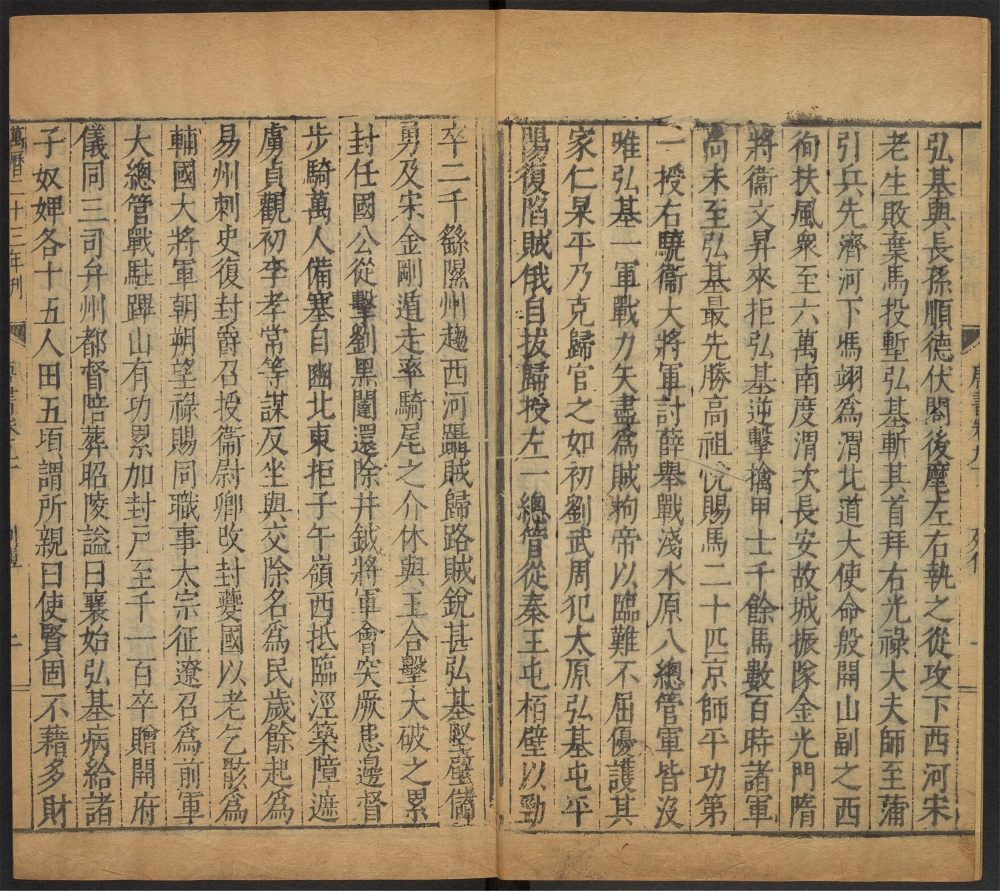 弘基與長孫順德伏閤後麾左右執之從攻下西河宋
老生敗葉馬投塹弘基斬其首拜右光祿大夫師至蒲
引兵先濟河下馮翊爲渭北道大使命殷開山副之西
徇扶風衆至六萬南度渭次長安故城振隊金光門隋
將衞文昇來拒弘基逆擊擒甲士千餘馬數百時諸軍
尚未至弘基最先勝高祖悅賜馬二十匹京師平功第
一授右驍衞大將軍討薛舉戰淺水原八總管軍皆沒
唯弘基一軍戰力矢盡爲賊拘帝以臨難不屈優護其
家仁杲平乃克歸官之如初劉武周犯太原弘基屯平
陽復陷賊俄自拔歸授左一總管從秦王屯栢壁以勁
卒二千繇隰州趨西河躡賊歸路賊銳甚弘基堅壁儲
勇及宋金剛遁走率騎尾之介休與王合擊大破之累
封任國公從擊劉黑闥還除井鉞將軍會突厥患邊督
步騎萬人備塞自豳北東拒子午嶺西抵臨涇築障遮
虜貞觀初李孝常等謀反坐與交除名爲民歲餘起爲
易州刺史復封爵召授衞尉卿改封夔國以老乞骸爲
輔國大將軍朝朔望祿賜同職事太宗征遼召爲前軍
大總管戰駐蹕山有功累加封戶至千一百卒贈開府
儀同三司并州都督陪葬昭陵謚曰襄始弘基病給諸
子奴婢各十五人田五頃謂所親曰使賢固不藉多財
萬曆二十三年刊